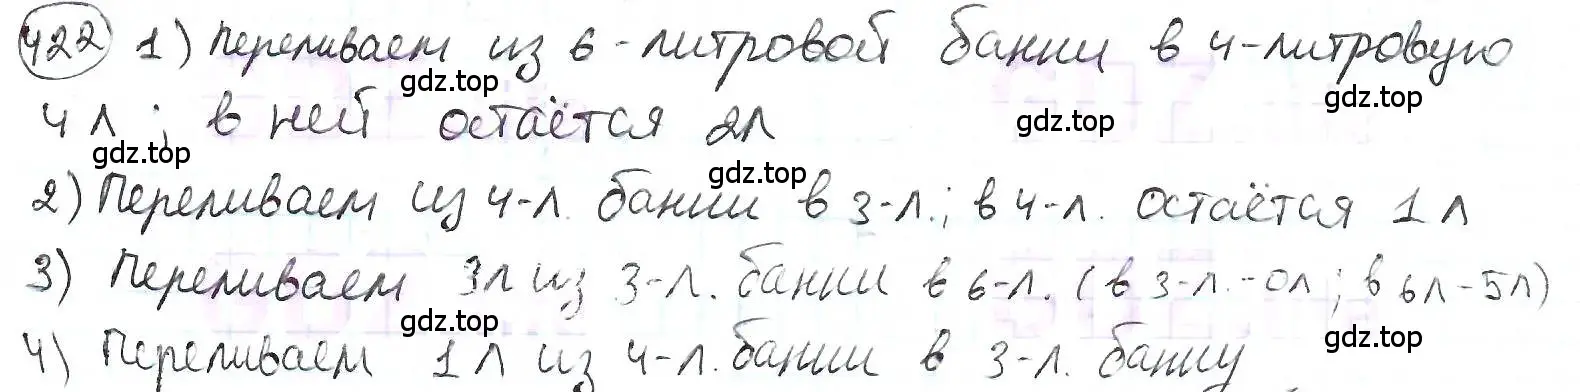 422 1) Переливаем из 6-литровой банки в 4-литровую
gdz.top gdz.top
4 л; в ней остаётся 2л
gdz.top gdz.top gdz.top
2) Переливаем из 4-л. банки в 3-л.; в 4-л. остаётся 1 л
3) Переливаем 3л из 3-л. банки в 6-л. (в 3-л.-0л; в 6л-5л)
gdz.top gdz.top
4) Переливаем 1 л из 4-л. банки в 3-л. банку